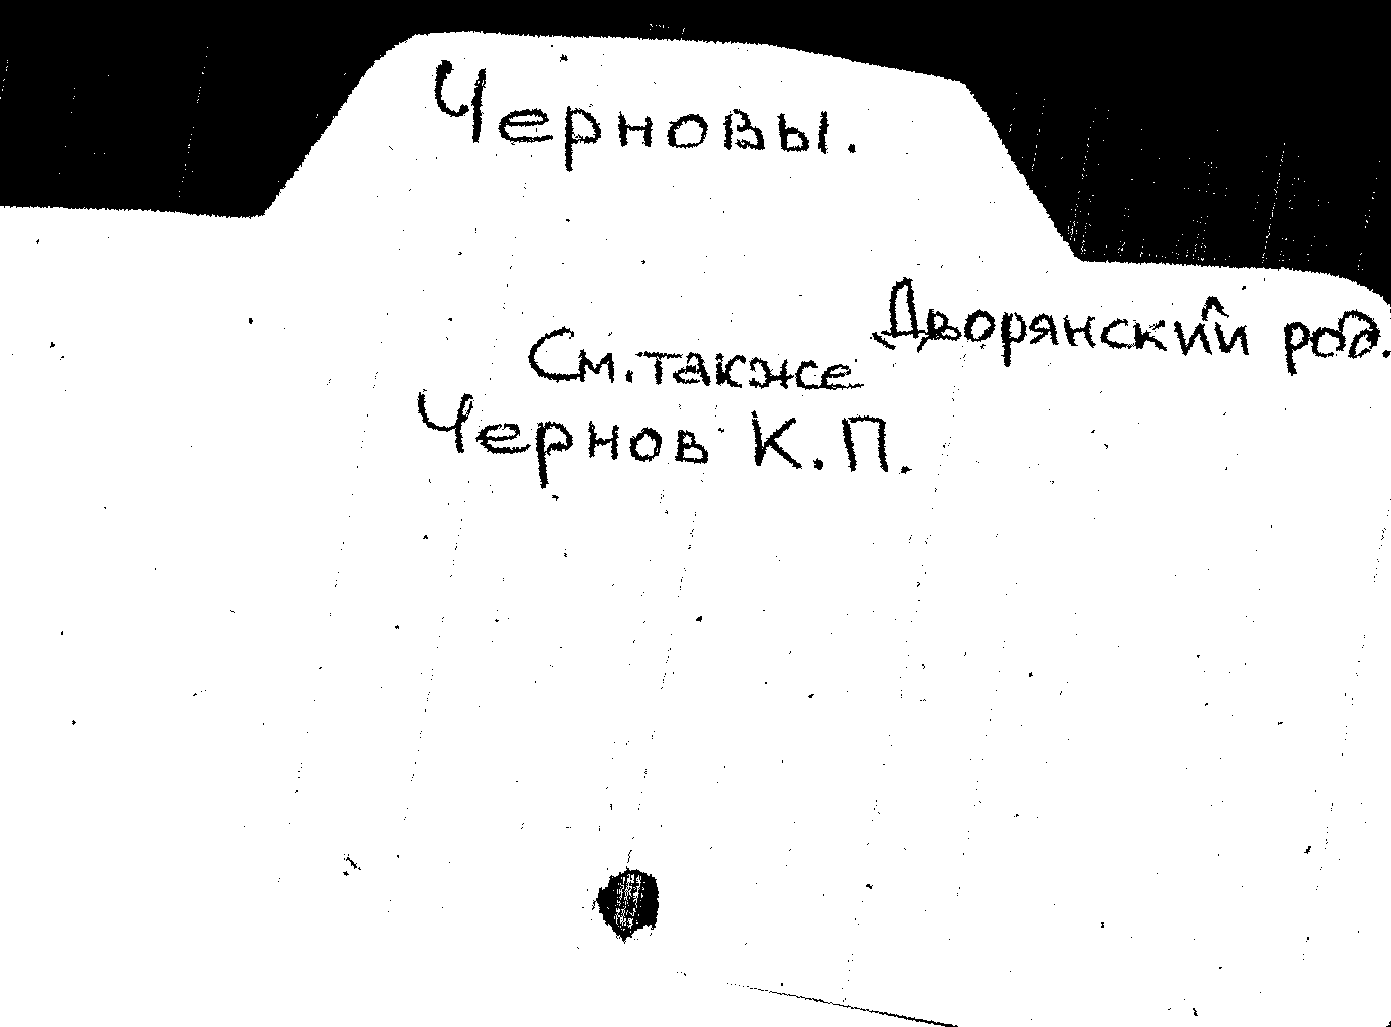 Черновы.
Дворянский род.
См. также
Чернов К.П.